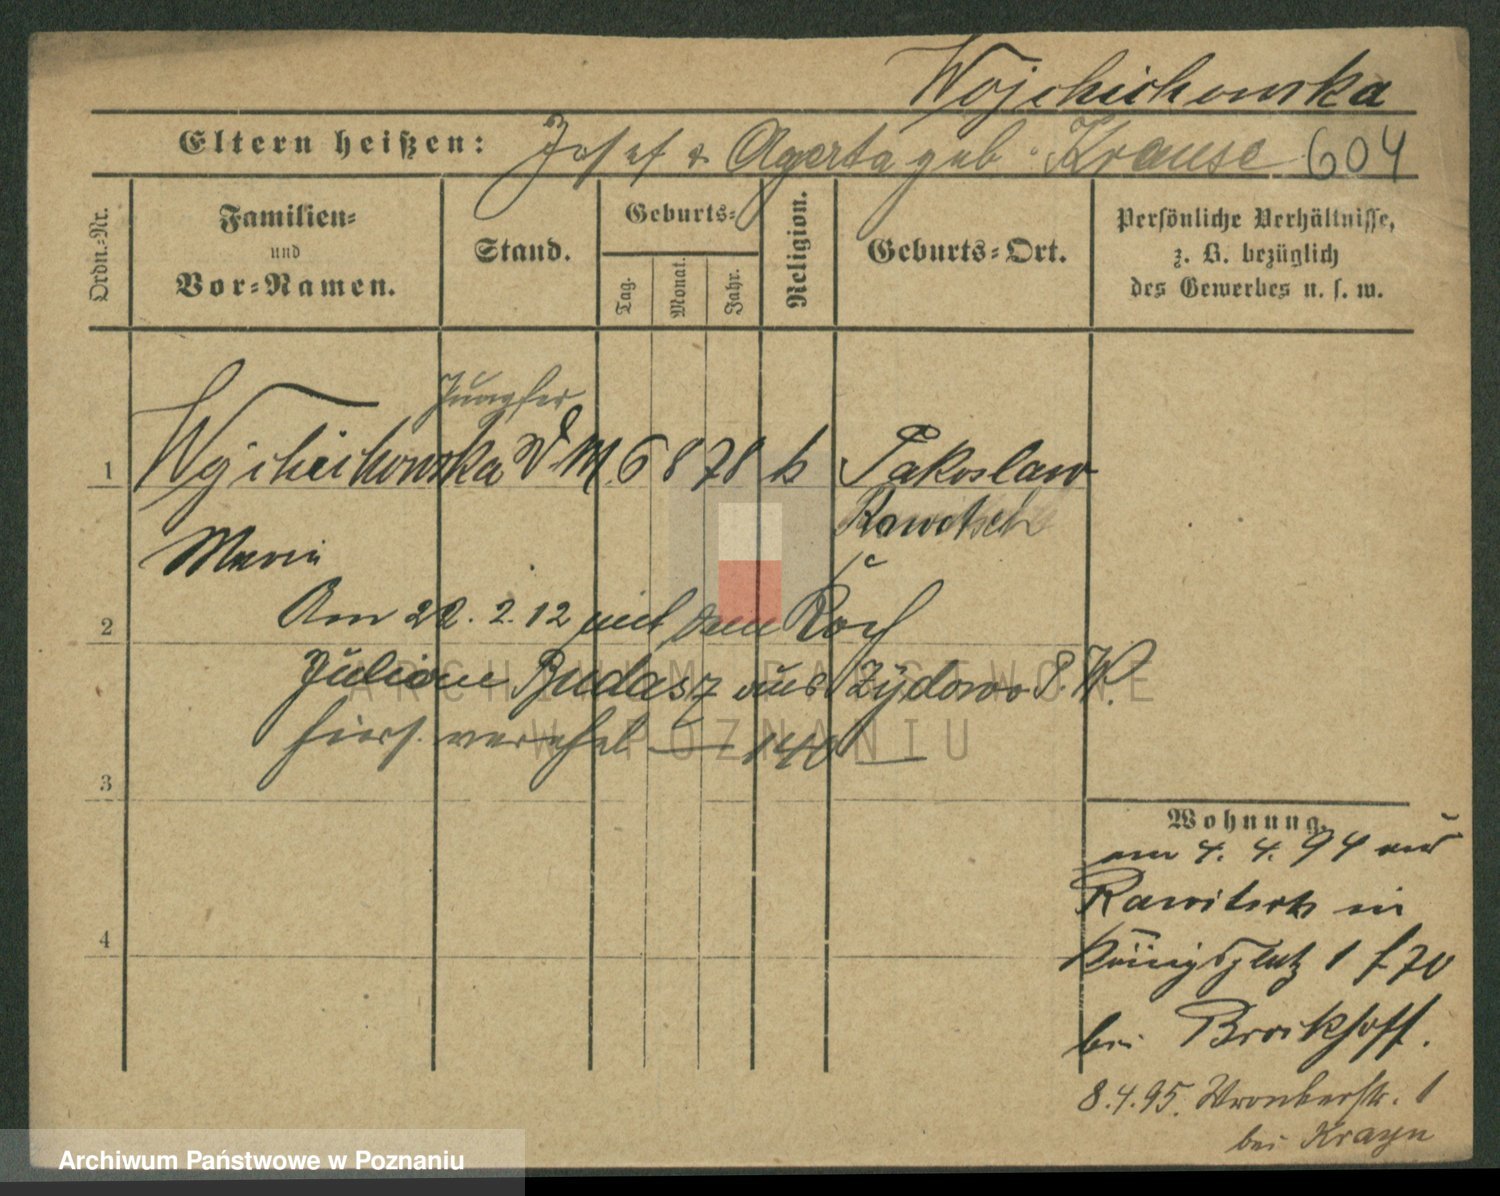 Wojchichowska
Eltern heißen: Josef & Agarta geb. Krause 604
Ordn.-Nr.
Familien-
und
Vor-Namen.
Stand.
Geburts-
Tag.
Monat.
Jahr.
Religion.
Geburts-Ort.
Persönliche Verhältnisse,
z. B. bezüglich
des Gewerbes u. s. w.
Jungfer
1 Wojchichowska D. M. 6 8 78 k Pakoslaw
Rawitsch
Maria
Am 22. 2. 12 mit dem Koch
2
Julian Budasz aus Żydowo P. W.
hiers. verehel. 140
3
4
Wohnung.
am 4. 4. 94 aus
Rawitsch in
Königsplatz 1
bei Brockhoff.
8.4.95. Wronkerstr. 1
bei Krayn
ARCHIWUM PAŃSTWOWE
W POZNANIU
Archiwum Państwowe w Poznaniu